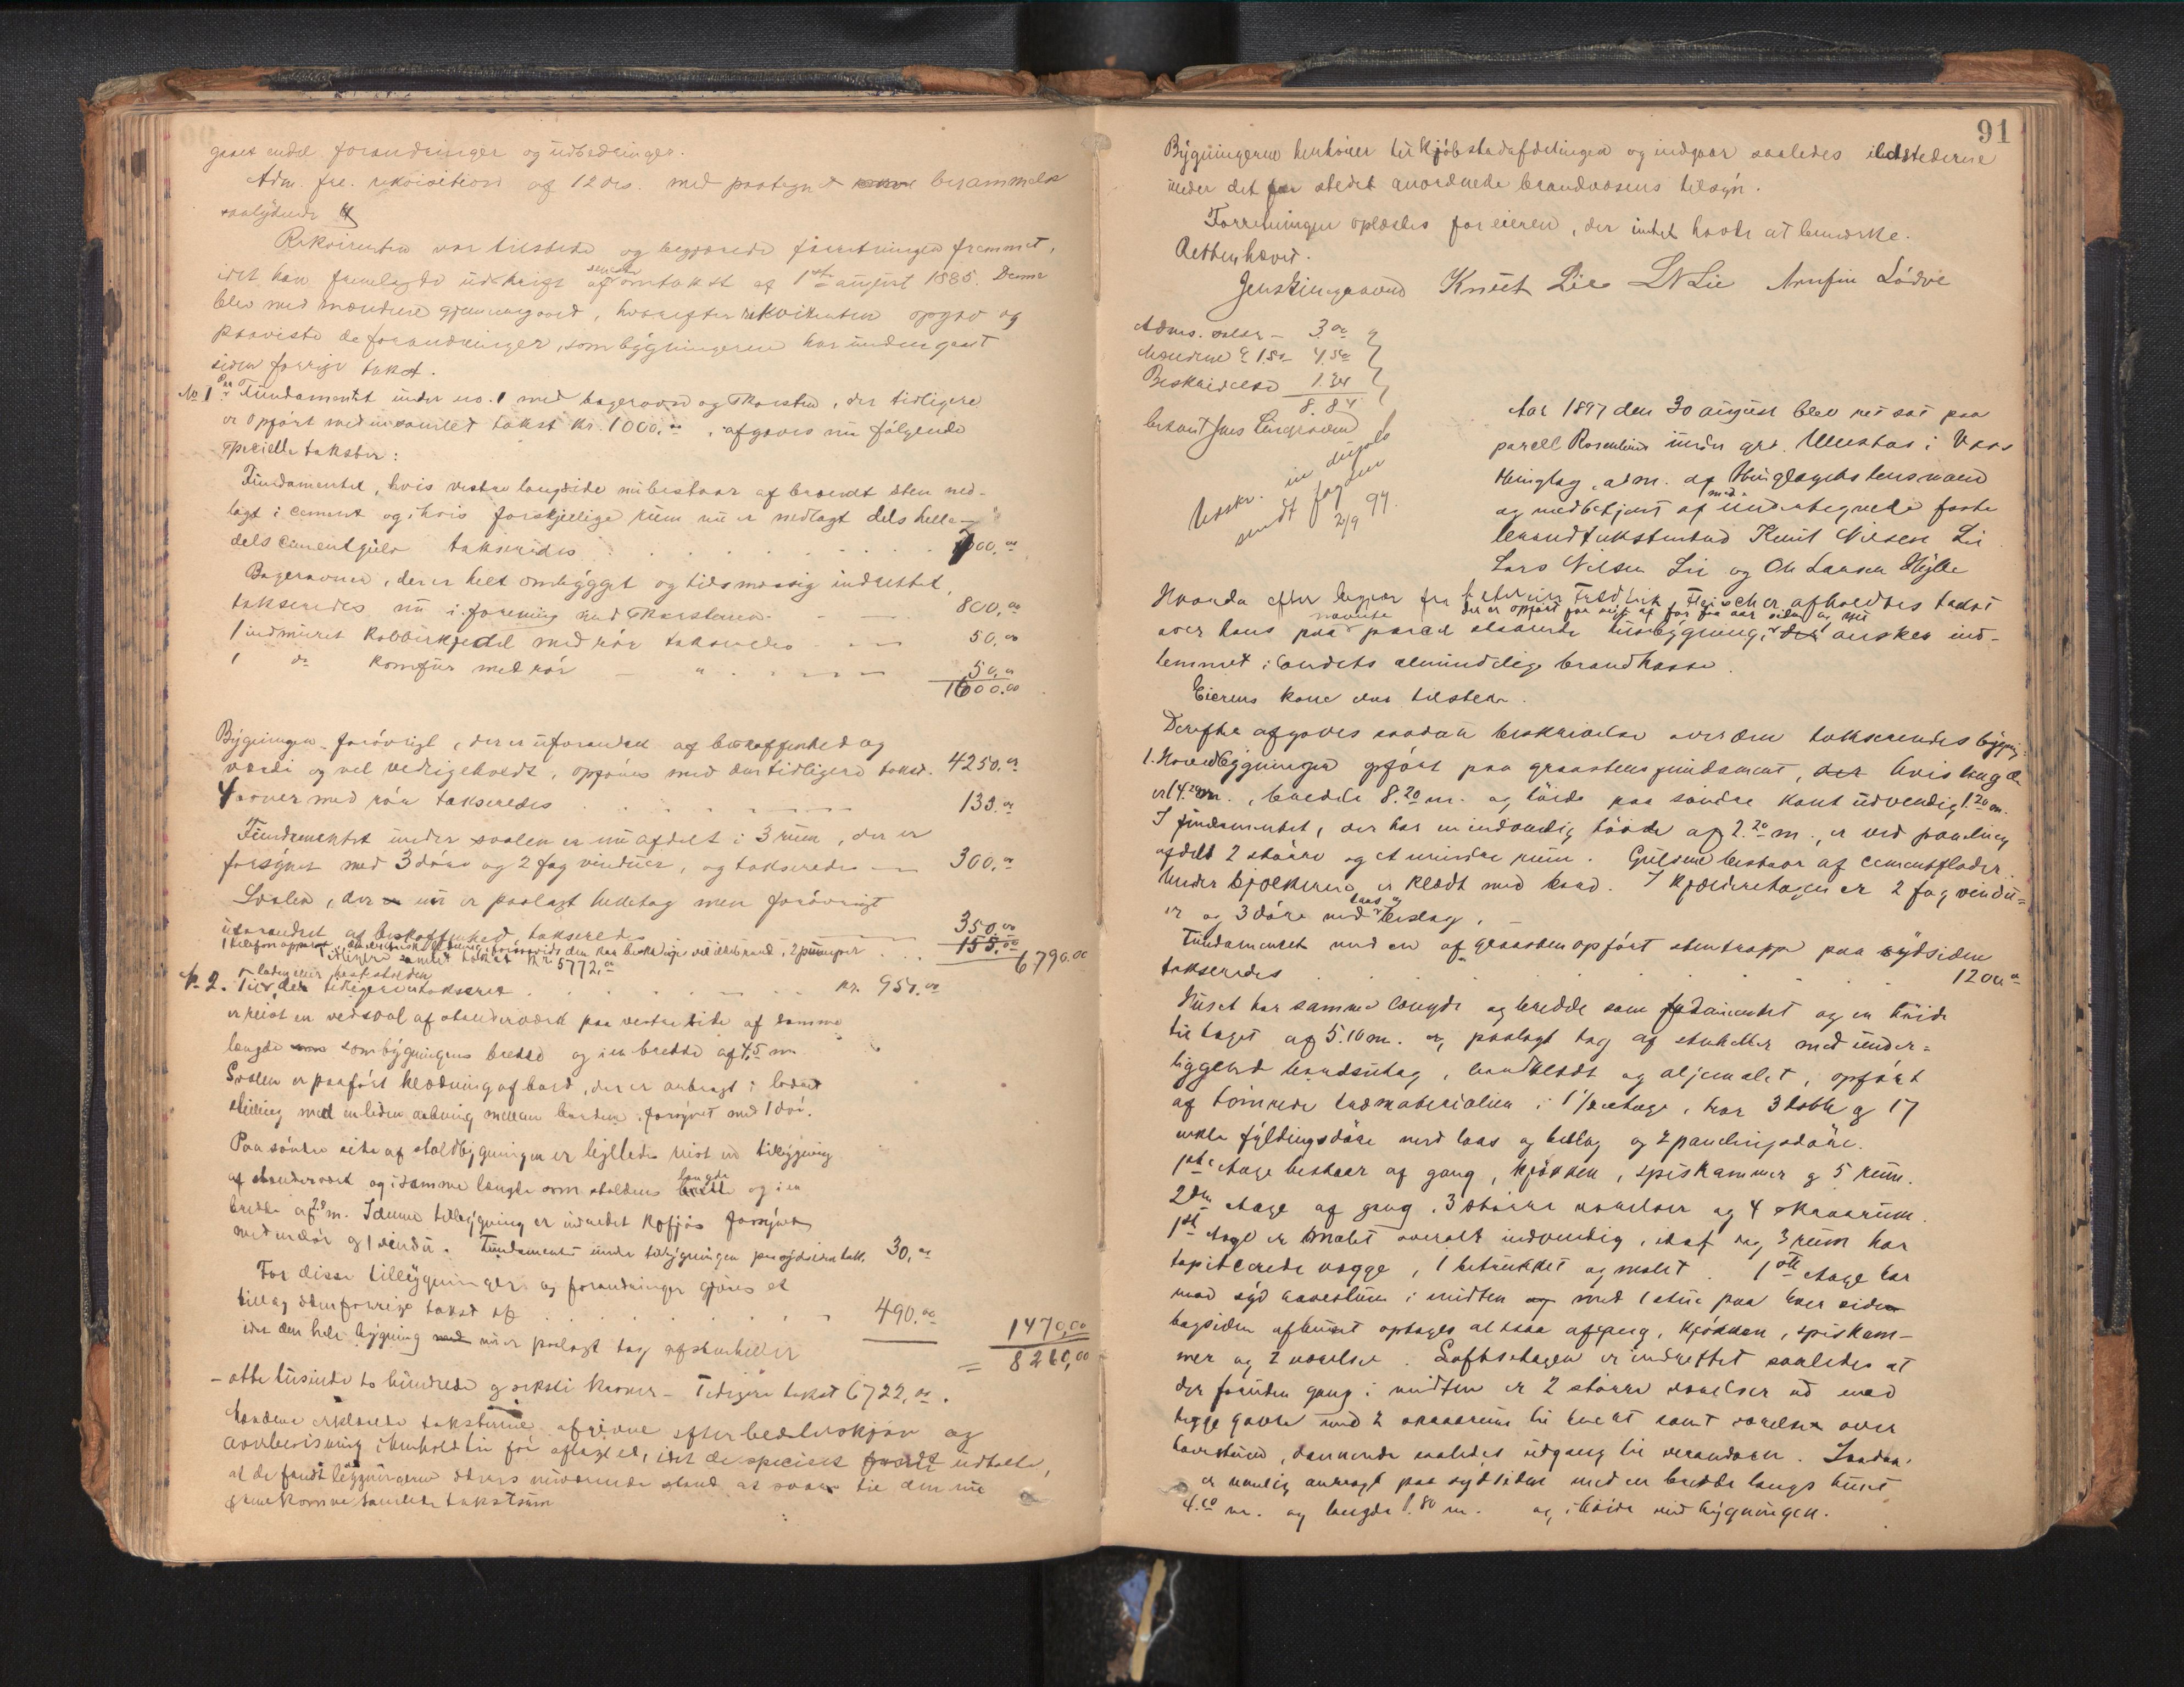 gaaet endel forandringer og udbedringer.
Adm. fre. rekvisition af 12 ds. med paategnet berammelse
saalydende
Rekvirenten var tilstede og begjærede forretningen fremmet,
idet han fremlagde udskrift af seneste omtakst af 1ste august 1885. Denne
blev med mændene gjennemgaaet, hvorefter rekvirenten opgav og
paaviste de forandringer, som bygningerne har undergaaet
siden forrige takst.
No 1 Fundamentet under no. 1 med bagerovn og skorsten, der tidligere
er opført med en samlet takst kr. 1000,00, afgaves nu følgende
specielle takster:
Fundamentet, hvis vestre langside nu bestaar af brændt sten ned-
lagt i cement og i hvis forskjellige rum nu er nedlagt dels helle-
dels cimentgulv takseredes . . . 700,00
Bagerovnen, der er helt ombygget og tidsmæssig indrettet,
takseredes nu i forening med skorstenen 800,00
1 indmuret kobberkjedel med rør takseredes 50,00
1 do komfur med rør " 50,00
1600.00
Bygningen forøvrigt, der er uforandret af beskaffenhed og
værdi og vel vedligeholdt, opføres med den tidligere takst. 4250,00
4 ovner med rør takseredes 135,00
Fundamentet under svalen er nu afdelt i 3 rum, der er
forsynet med 3 døre og 2 fag vinduer, og takseredes 300,00
Svalen, der nu er paalagt helletag men forøvrigt
uforandret af beskaffenhed takseredes 350,00
1 telefonapparat, elektrisk ledning, forsaavidt den kan beskadiges ved ildebrand, 2 pumper . . . 155,00 6790.00
tidligere samlet takst kr 5772,00
No 2. Til den tidligere takseret kr. 950,00
er reist en vedsval af stenderværk paa vestre side af samme
længde som bygningens bredde og i en bredde af 4,5 m
Svalen er paaført klædning af bord, der er anbragt i lodret
stilling med en liden aabning mellem bordene, forsynet med 1 dør.
Paa søndre side af staldbygningen er ligeledes reist en tilbygning
af stenderværk og i samme længde som staldens længde og i en
bredde af 20 m. I denne tilbygning er indredet kofjøs forsynet
med en dør og 1 vindu. Fundamentet under tilbygningen paa sydsiden taks. 30,00
For disse tilbygninger og forandringer gjøres et
tillæg i den forrige takst af . . . 490.00
1470,00
idet den hele bygning nu er paalagt tag af stenheller
= 8260,00
- otte tusinde to hundrede og seksti kroner - Tidligere takst 6722,00.
Mændene erklærede taksterne afgivne efter bedste skjøn og
overbevisning i henhold til før aflagt ed, idet de specielt udtalte,
at de fandt bygningerne i deres nuværende stand at svare til den nu
fremkomne samlede takstsum
91
Bygningerne henhører til kjøbstadafdelingen og indgaar saaledes ildstederne
under det for stedet anordnede brandvæsens tilsyn.
Forretningen oplæstes for eieren, der intet havde at bemærke.
Retten hævet.
Jens Lingaard Knut Lie LN Lie Arnfin Lødve
Adms. salær - 3.00
Mændene à 1.50 4.50
Beskrivelse 1.34
8.84
betalt Jens Lingaard
Beskr. in duplo
sendt fogden
2/9 97.
Aar 1897 den 30 august blev ret sat paa
parcell Rosenlund under grd. Ullestad i Voss
thinglag, adm. af thinglagets lensmand
og medbetjent af undertegnede faste
brandtakstmænd Knut Nilsen Lie
Lars Nilsen Lie og Ole Larsen Hylle
Hvorda efter begjær fra Fredrik Fleischer afholdtes takst
over hans paa nævnte parcel staaende husbygning, der er opført for nogle faa aar siden og nu ønskes ind-
lemmet i landets almindelige brandkasse.
Eierens kone var tilstede.
Derefter afgaves saadan beskrivelse over den takserendes bygning:
1. Hovedbygningen opført paa graastens fundament, hvis længde
er 14.20 m., bredde 8.20 m. og høide paa søndre kant udvendig 1.20 m.
I fundamentet, der har en indvendig høide af 2.20 m., er ved paneling
afdelt 2 større og et mindre rum. Gulvene bestaar af cementflader.
Under bjelkerne er klædt med bord. I kjælderetagen er 2 fag vindu-
er og 3 døre med laas og beslag. -
Fundamentet med en af graasten opført stentrappe paa sydsiden
takseredes . . . 1200,00
Huset har samme længde og bredde som fundamentet og en høide
til taget af 5.10 m. og paalagt tag af stenheller med under-
liggende bordsutag, bordklædt og oljemalet, opført
af tømrede træmaterialier i 1 1/2 etage, har 3 dobb. og 17
enkle fyldingsdøre med laas og beslag og 2 panelingsdøre.
1ste etage bestaar af gang, kjøkken, spiskammer og 5 rum.
2den etage af gang, 3 større værelser og 4 skraarum.
1ste etage er malet overalt indvendig, idet dog 3 rum har
tapitcerede vægge, 1 betrukket og malet. 1ste etage har
mod syd havestue i midten med 1 stue paa hver side
bagsiden af huset optages altsaa af gang, kjøkken, spiskam-
mer og 2 værelser. Loftsetagen er indrettet saaledes at
der foruden gang i midten er 2 større værelser ud mod
begge gavle med 2 skraarum til hvert samt værelset over
havestuen, dannende saaledes udgang til verandaen. Saadan
er nemlig anbragt paa sydsiden med en bredde langs huset
4.60 m. og længde 1.80 m. og i høide med bygningen.